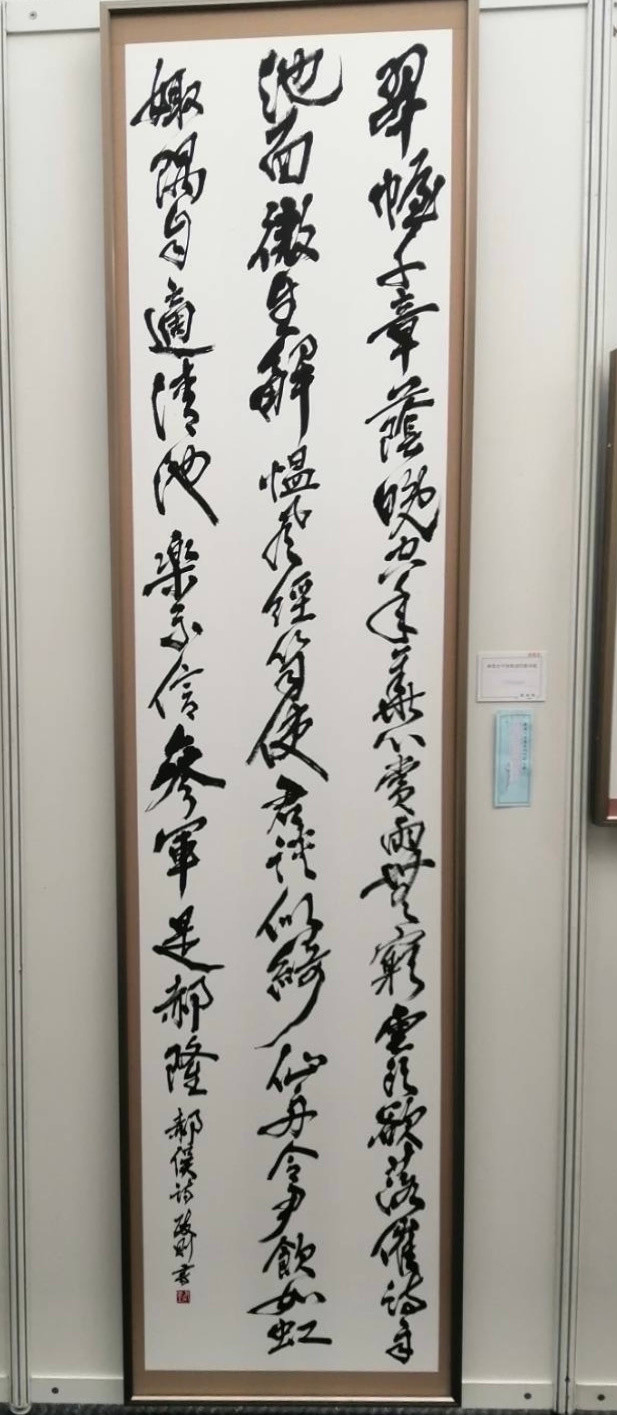 翠幄千章蔭晩空年華心賞兩無窮雲頭欲落催詩雨
池面微生解慍風經笥使君談似綺仙舟令尹飲如虹
娵隅自適清池楽不信參軍是郝隆 郝俣詩 書